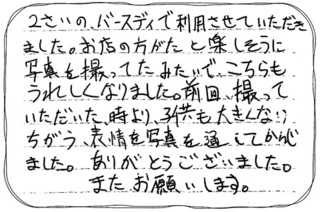 2さいの、バースディで利用させていただき
ました。お店の方がたと楽しそうに
写真を撮ってたみたいで、こちらも
うれしくなりました。前回、撮って
いただいた、時より、子供も大きくなり
ちがう、表情を写真を通してかんじ
ました。ありがとうございました。
またお願いします。